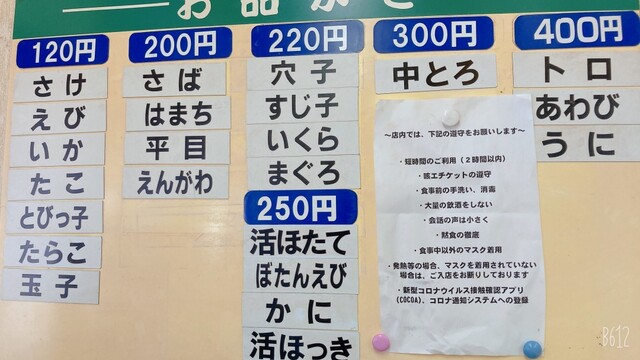 お品がき
120円
さけ
えび
いか
たこ
とびっ子
たらこ
玉子
200円
さば
はまち
平目
えんがわ
220円
穴子
すじ子
いくら
まぐろ
250円
活ほたて
ぼたんえび
かに
活ほっき
300円
中とろ
400円
トロ
あわび
うに
～店内では、下記の遵守をお願いします～
・短時間のご利用(2時間以内)
・咳エチケットの遵守
・食事前の手洗い、消毒
・大量の飲酒をしない
・会話の声は小さく
・黙食の徹底
・食事中以外のマスク着用
・発熱等の場合、マスクを着用されていない
場合は、ご入店をお断りしております
・新型コロナウイルス接触確認アプリ
(COCOA)、コロナ通知システムへの登録
B612